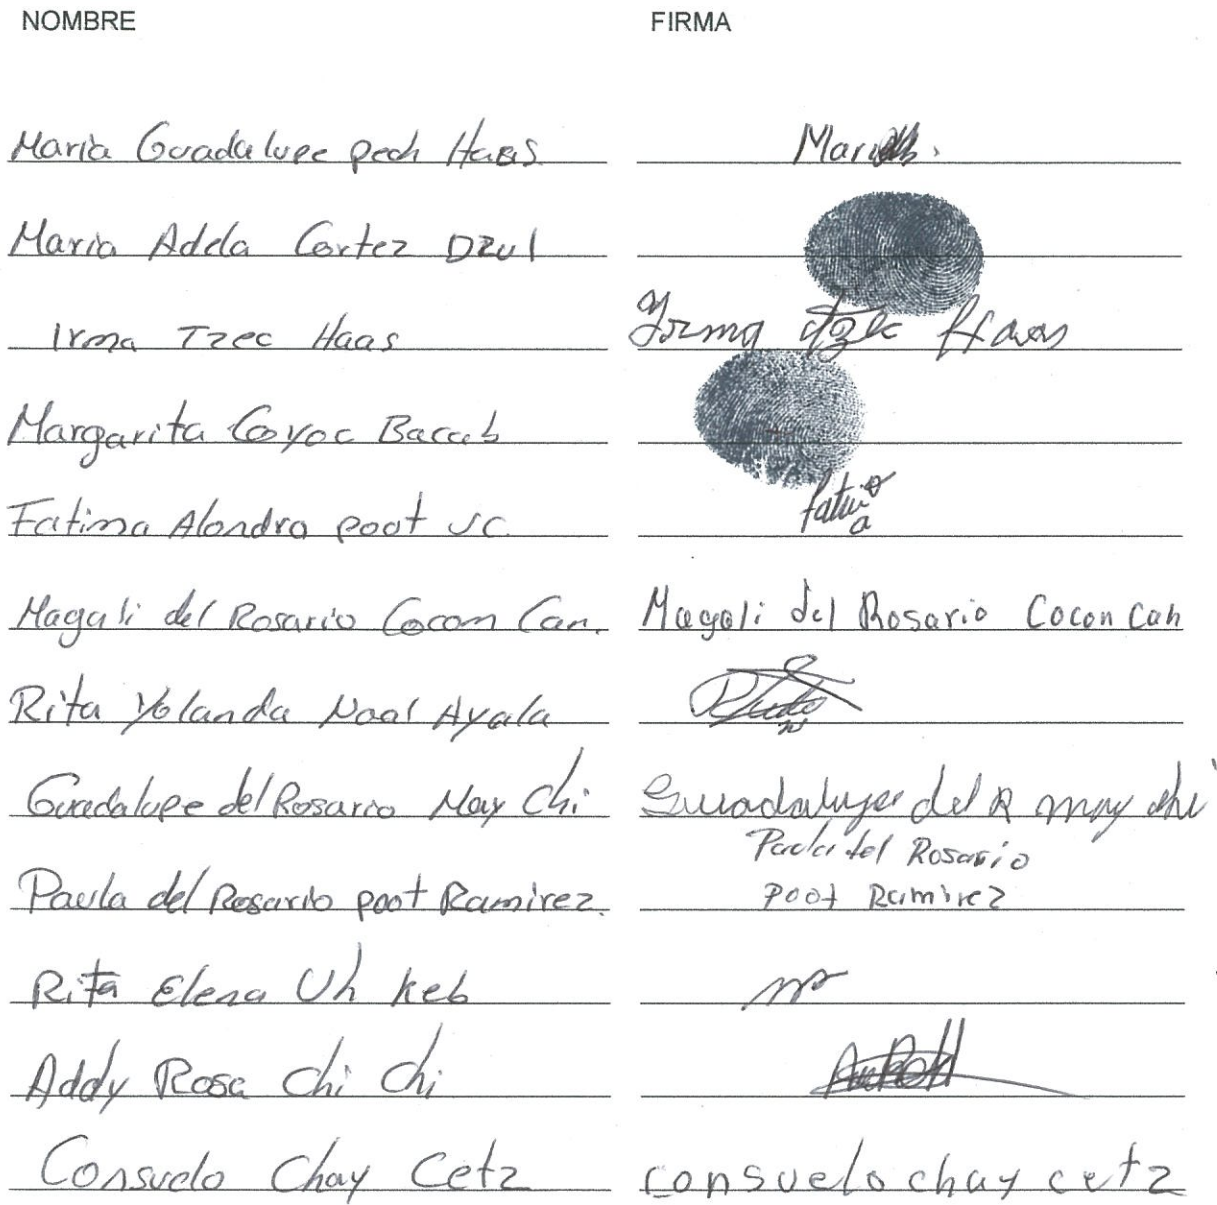 NOMBRE FIRMA
Maria Guadalupe pech Haas
Maria Adela Cortez Dzul
Irma Tzec Haas Irma tzec Haas
Margarita Coyoc Bacab
Fatima Alondra poot uc. Fatima
Magali del Rosario Cocom Can. Magali del Rosario Cocon Can
Rita Yolanda Noal Ayala
Guadalupe del Rosario May Chi Guadalupe del R may chi
Paula del Rosario
Paula del Rosario poot Ramirez. Poot Ramirez
Rita Elena Uh keb
Addy Rosa Chi Chi
Consuelo Chay Cetz consuelo chay cetz